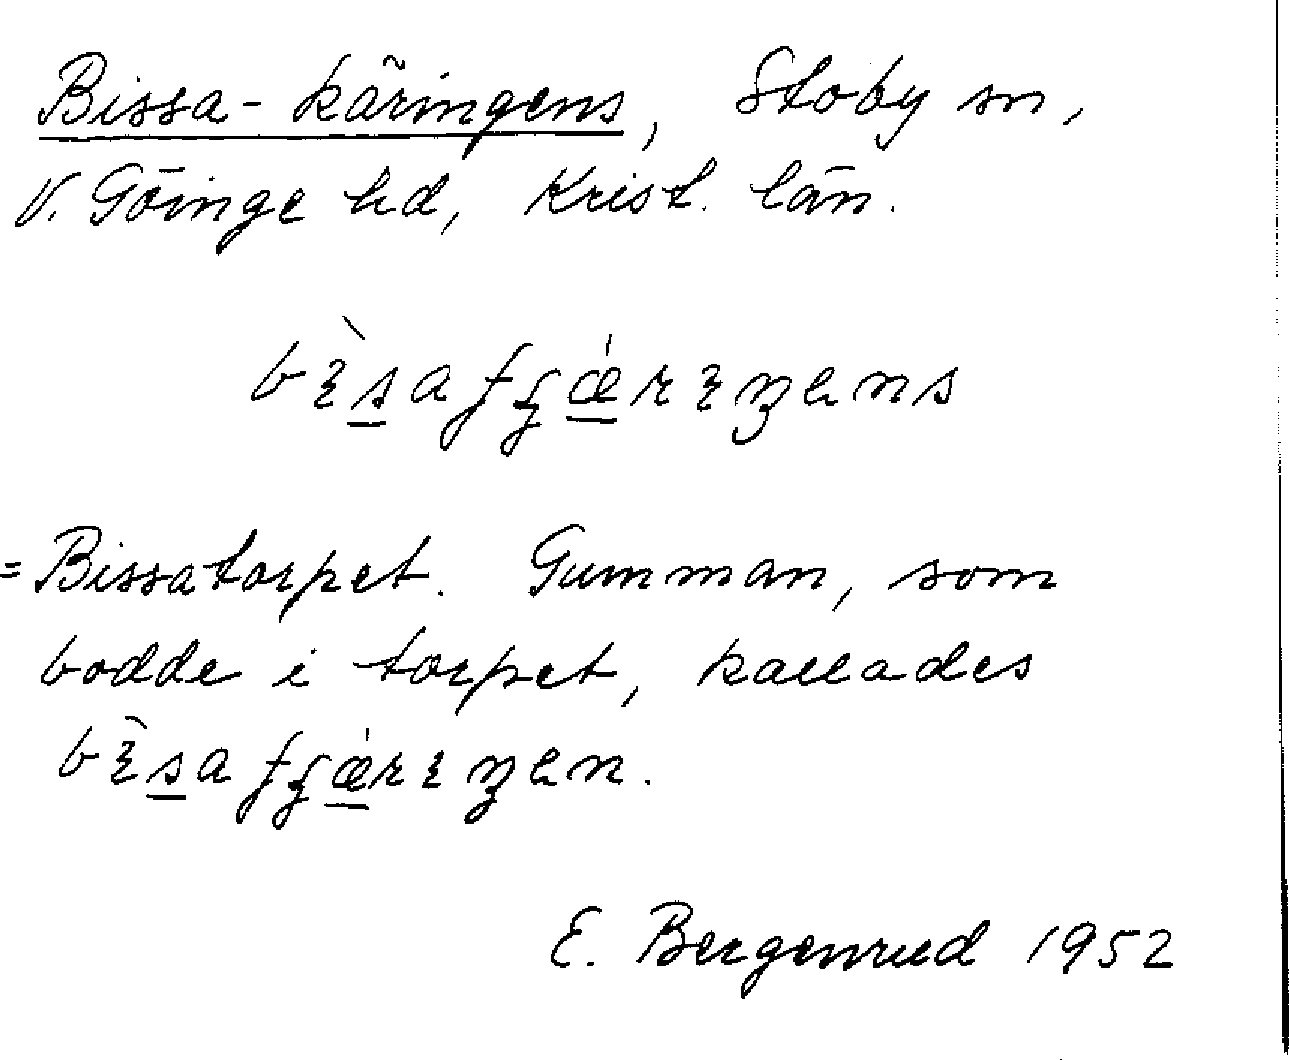 Bissa-käringens, Stoby sn,
V. Göinge hd, Krist. län.
= Bissatorpet. Gumman, som
bodde i torpet, kallades
E. Bergenrud 1952